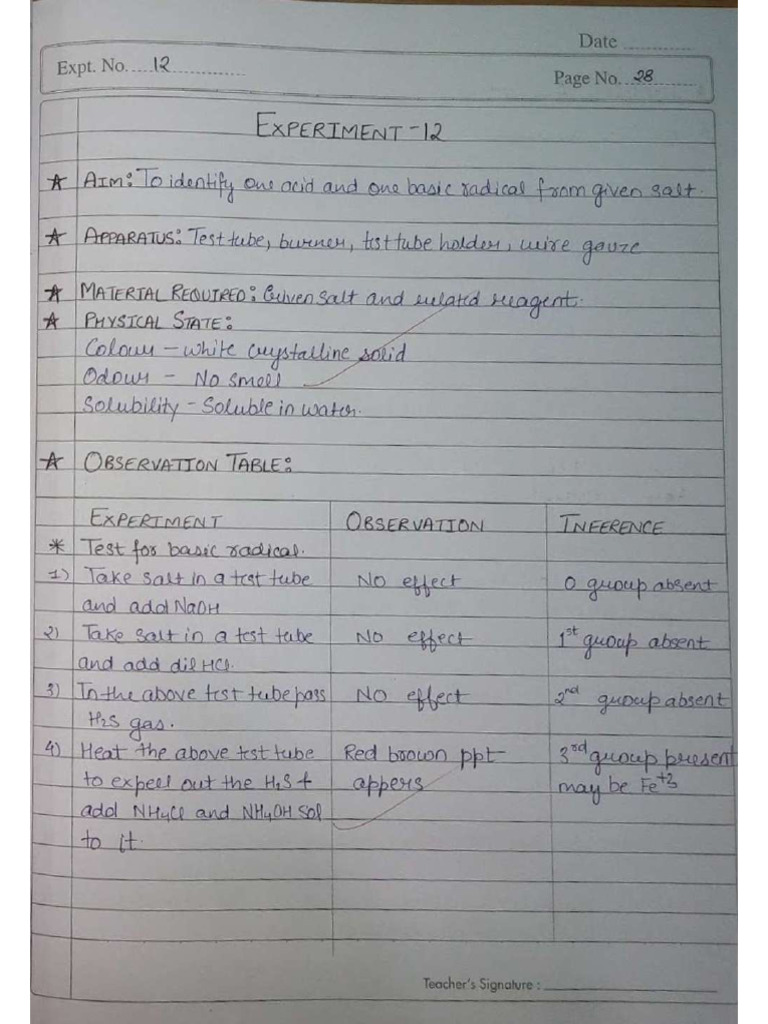 Date
Expt. No. 12
Page No. 28
EXPERIMENT-12
☆ AIM: To identify one acid and one basic radical from given salt.
☆ APPARATUS: Test tube, burner, test tube holder, wire gauze
☆ MATERIAL REQUIRED: Given salt and related reagent.
☆ PHYSICAL STATE:
Colour - white crystalline solid
Odour - No smell
Solubility - Soluble in water.
☆ OBSERVATION TABLE:
EXPERIMENT OBSERVATION INFERENCE
* Test for basic radical.
1) Take salt in a test tube No effect 0 group absent
and add NaOH
2) Take salt in a test tube No effect 1st group absent
and add dil HCl.
3) In the above test tube pass No effect 2nd group absent
H2S gas.
4) Heat the above test tube Red brown ppt 3rd group present
to expell out the H2S + appers may be Fe+3
add NH4Cl and NH4OH sol
to it.
Teacher's Signature :